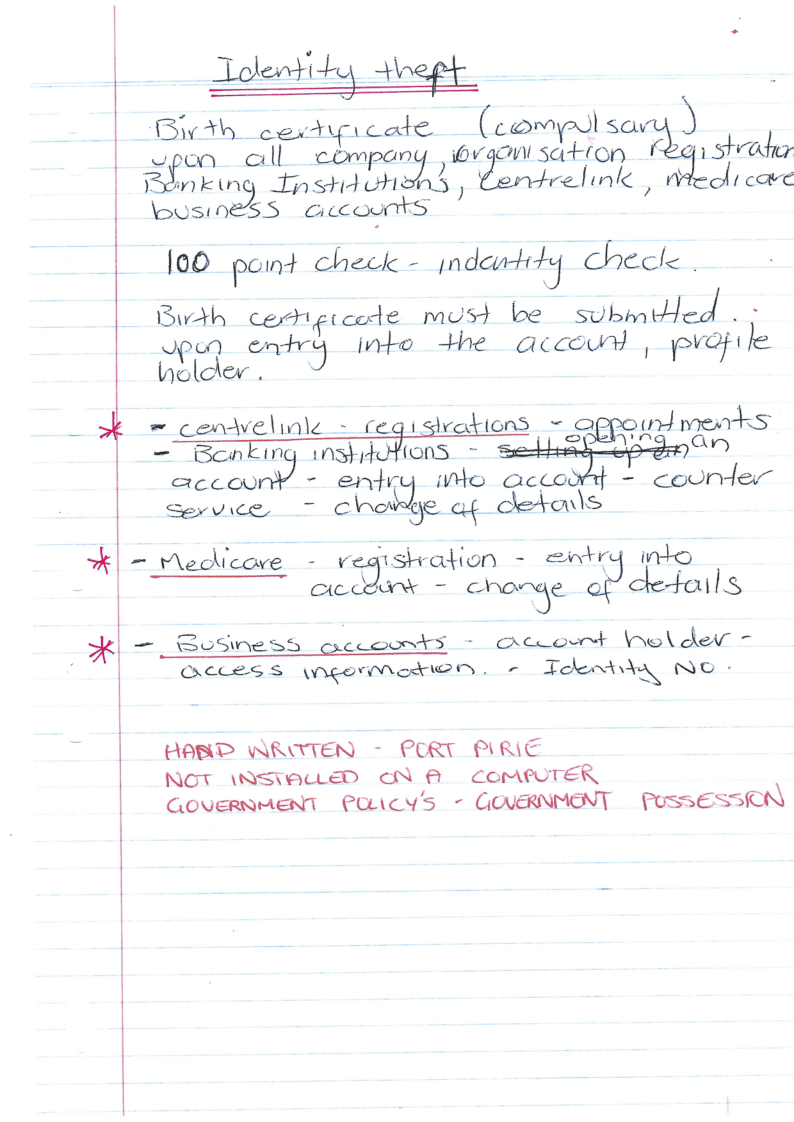 Identity theft
Birth certificate (compulsary)
upon all company, organisation registration
Banking Institutions, Centrelink, medicare
business accounts
100 point check - indentity check.
Birth certificate must be submitted.
upon entry into the account, profile
holder.
* - centrelink - registrations - appointments
opening
- Banking institutions - setting up an an
account - entry into account - counter
service - change of details
* - Medicare - registration - entry into
account - change of details
* - Business accounts - account holder -
access information. - Identity No.
HAND WRITTEN - PORT PIRIE
NOT INSTALLED ON A COMPUTER
GOVERNMENT POLICY'S - GOVERNMENT POSSESSION